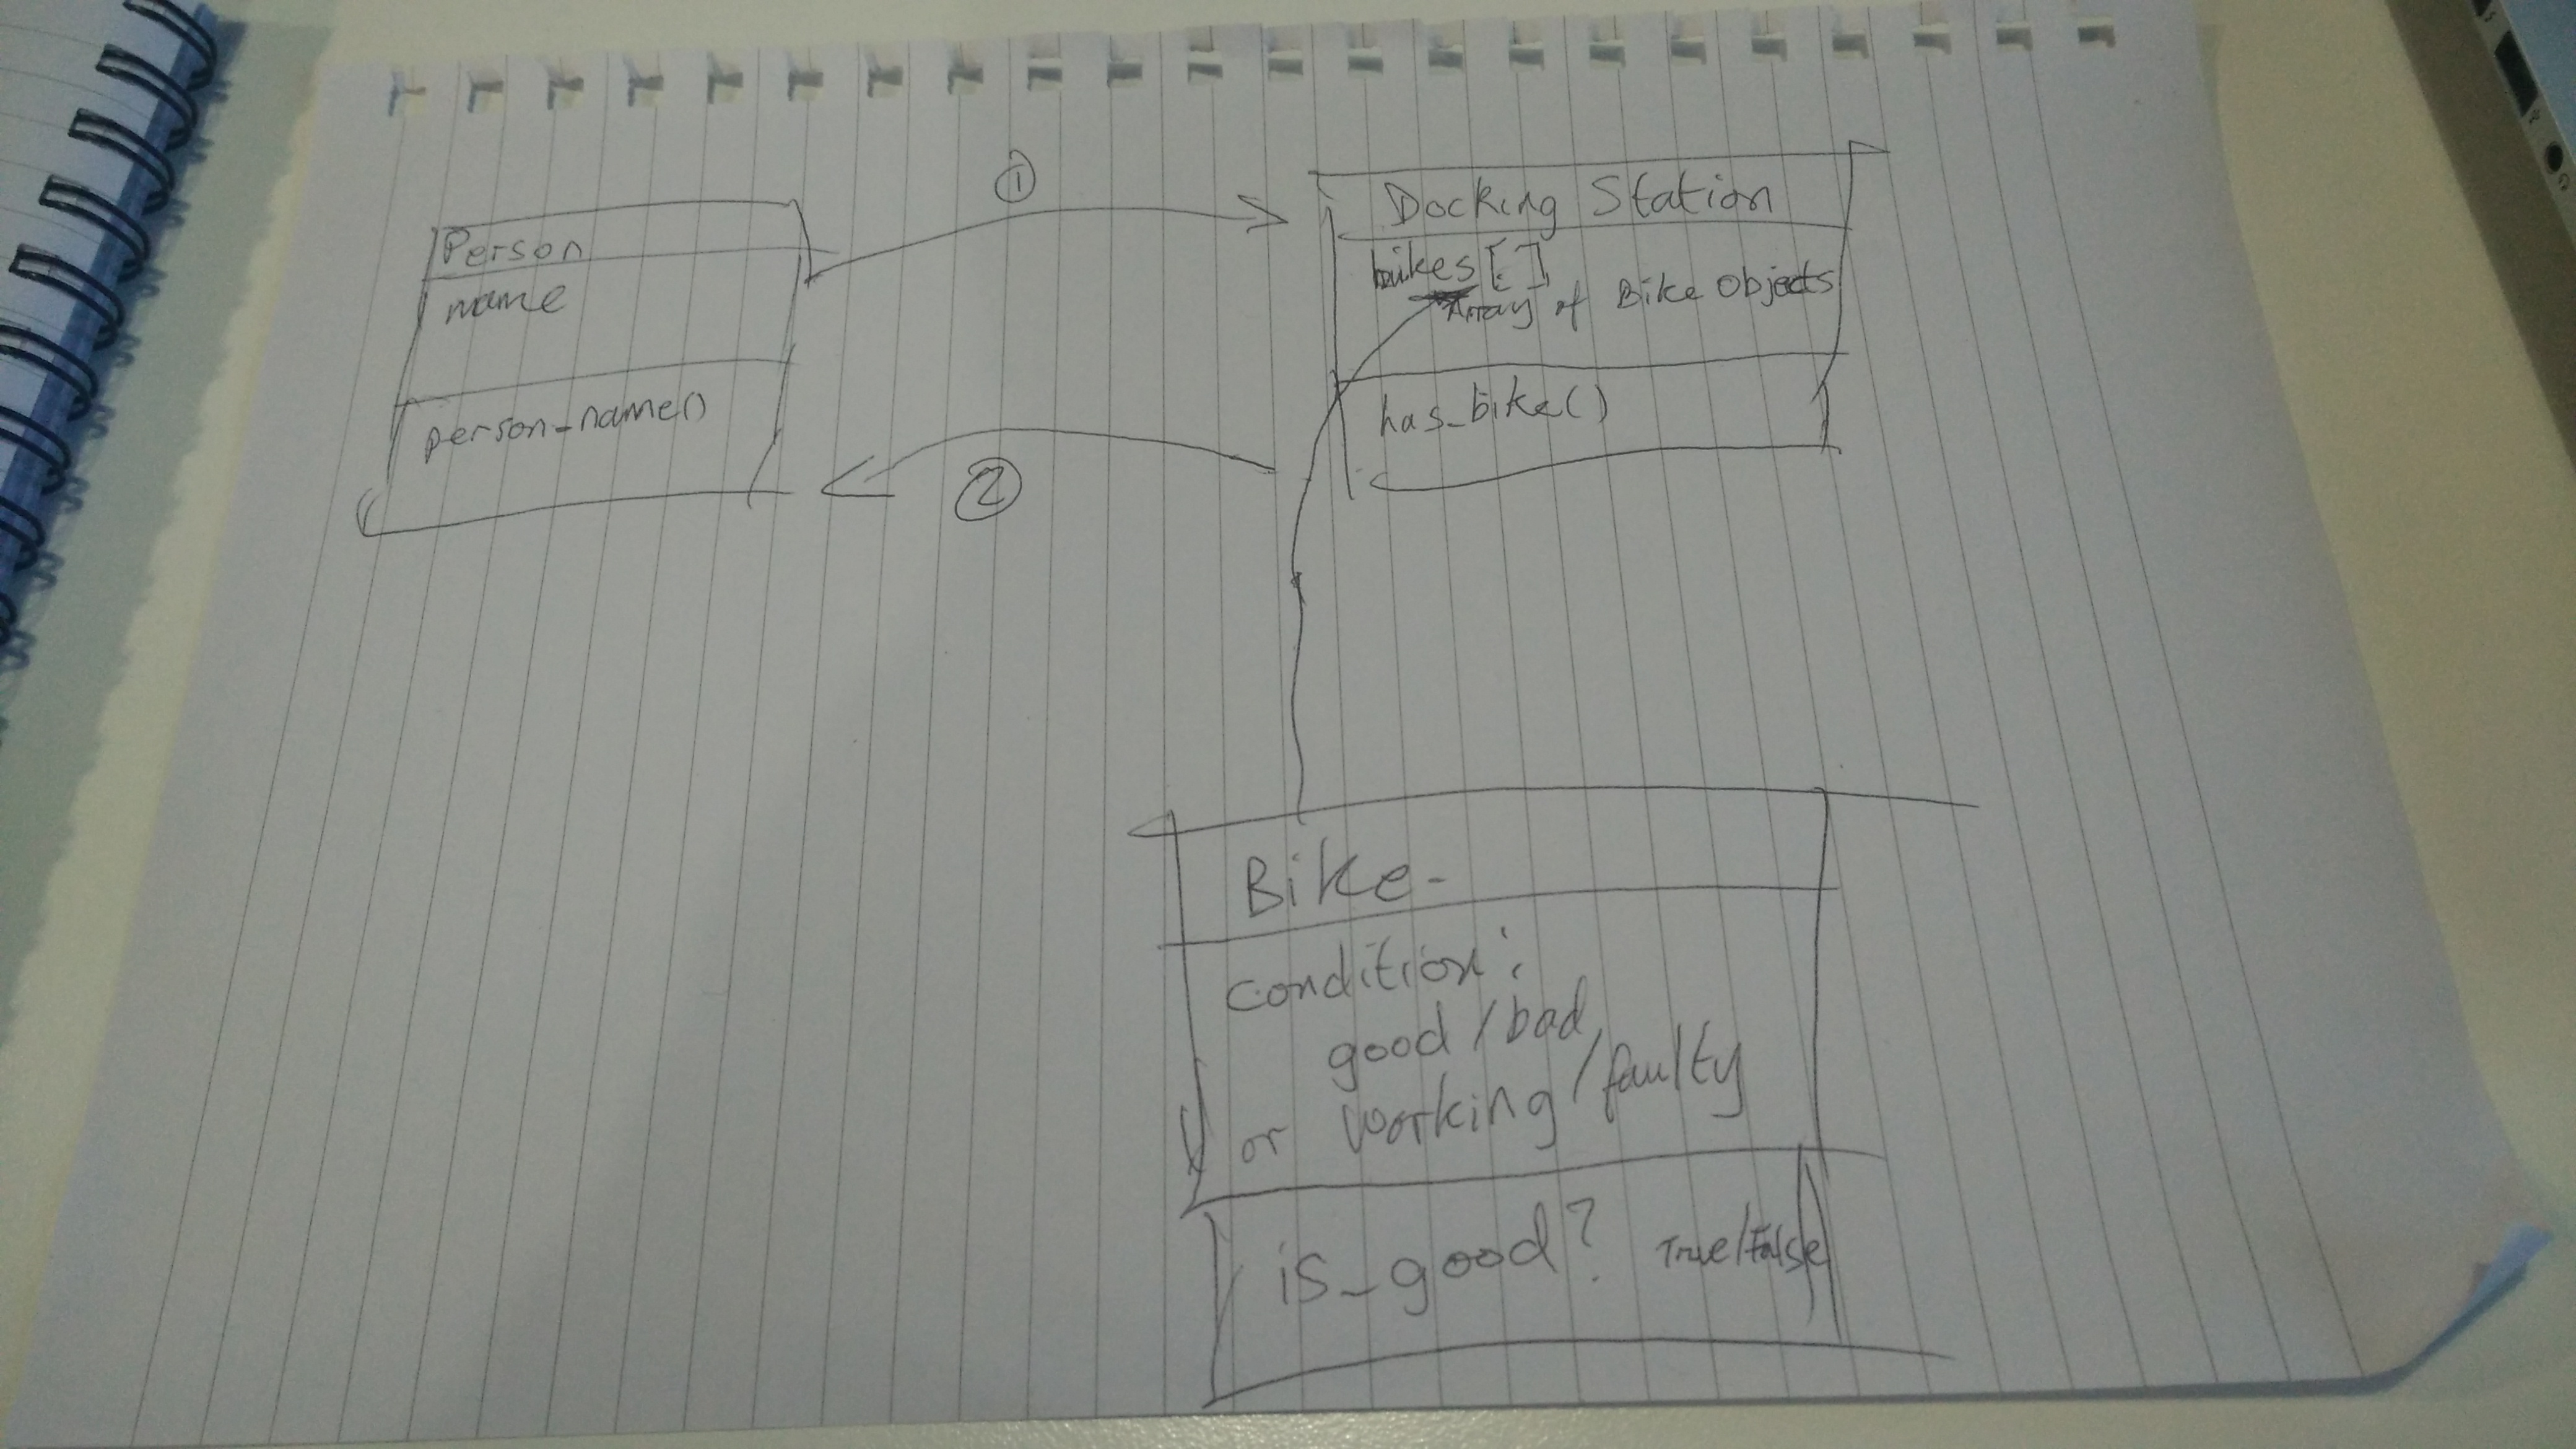 Person
name
person_name()
①
②
Docking Station
bikes[ ]
Array of Bike Objects
has_bike()
Bike-
condition:
good/bad
or working/faulty
is_good? True/False